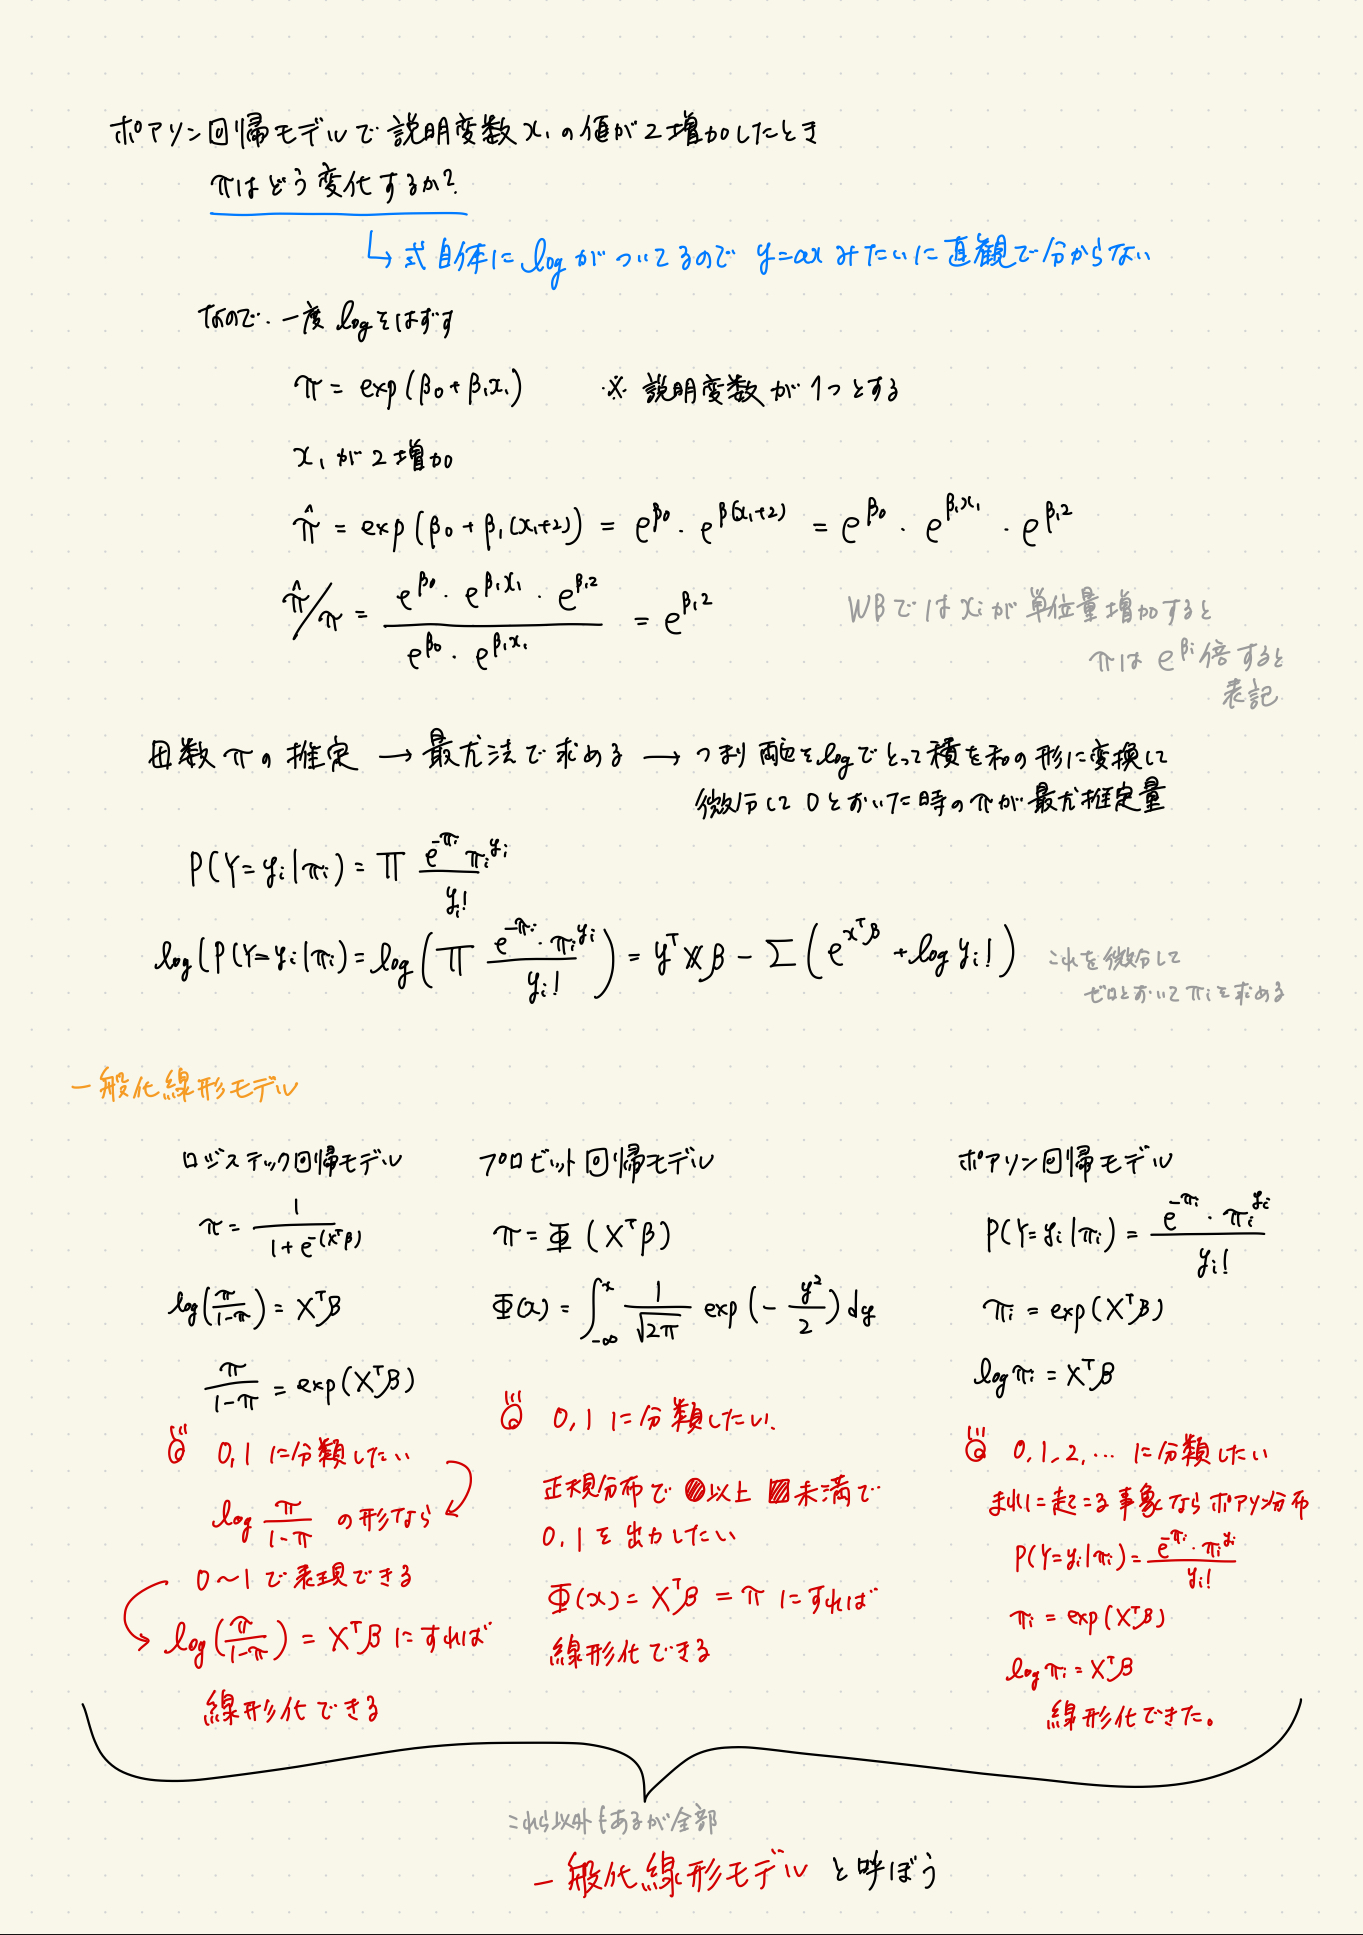 ポアソン回帰モデルで説明変数x₁の値が2増加したとき
πはどう変化するか?
↳ 式自体にlogがついてるので y=ax みたいに直観で分からない
なので、一度logをはずす
π = exp(β₀+β₁x₁) ※ 説明変数が1つとする
x₁が2増加
π̂ = exp(β₀+β₁(x₁+2)) = e^β₀ · e^β(x₁+2) = e^β₀ · e^β₁x₁ · e^β₁2
π̂/π = (e^β₀ · e^β₁x₁ · e^β₁2)/(e^β₀ · e^β₁x₁) = e^β₁2
WBではxᵢが単位量増加すると
πは e^βᵢ倍すると
表記
母数πの推定 → 最尤法で求める → つまり両辺をlogでとって積を和の形に変換して
微分して0とおいた時のπが最尤推定量
P(Y=yᵢ|πᵢ) = Π (e^-πᵢ πᵢ^yᵢ)/yᵢ!
log(P(Y=yᵢ|πᵢ) = log(Π (e^-πᵢ · πᵢ^yᵢ)/yᵢ!) = yᵀXβ − Σ(e^xᵀβ + log yᵢ!)
これを微分して
ゼロとおいてπᵢを求める
一般化線形モデル
ロジスティック回帰モデル
π = 1/(1+e^-(xᵀβ))
log(π/(1-π)) = Xᵀβ
π/(1-π) = exp(Xᵀβ)
0,1に分類したい
log π/(1-π) の形なら
0〜1で表現できる
log(π/(1-π)) = Xᵀβ にすれば
線形化できる
プロビット回帰モデル
π = Φ(Xᵀβ)
Φ(x) = ∫_-∞^x 1/√2π exp(− y²/2) dy
0,1に分類したい.
正規分布で 以上 未満で
0,1を出力したい
Φ(x) = Xᵀβ = π にすれば
線形化できる
ポアソン回帰モデル
P(Y=yᵢ|πᵢ) = (e^-πᵢ · πᵢ^yᵢ)/yᵢ!
πᵢ = exp(Xᵀβ)
log πᵢ = Xᵀβ
0,1,2,… に分類したい
まれに起こる事象ならポアソン分布
P(Y=yᵢ|πᵢ) = (e^-πᵢ · πᵢ^yᵢ)/yᵢ!
πᵢ = exp(Xᵀβ)
log πᵢ = Xᵀβ
線形化できた。
これら以外もあるが全部
一般化線形モデル と呼ぼう